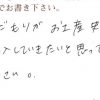 でお書き下さい。
どもりがお土産
入していきたいと思って
さい。